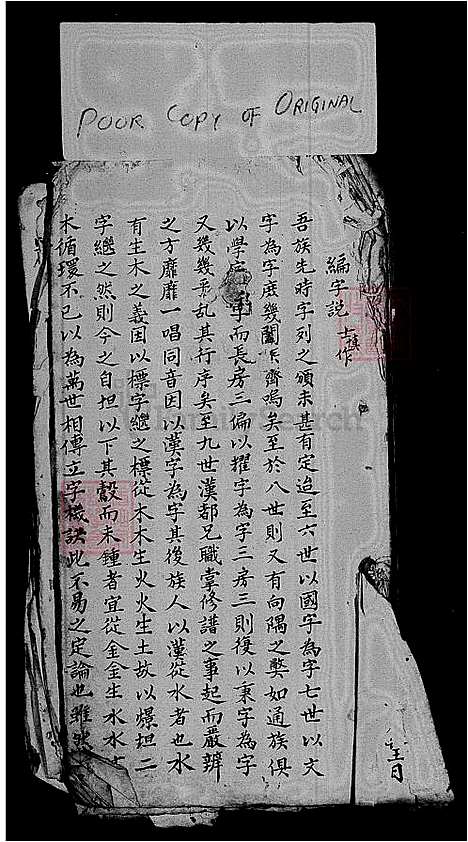 POOR COPY OF ORIGINAL
編字説 士鎮作
吾族先時字列之頒未甚有定迨至六世以國字為字七世以文
字為字庶幾闔下齊嗚矣至於八世則又有向隅之獘如通族俱
以學字為字而長房三偏以擢字為字三房三則復以秉字為字
又幾幾乎亂其行序矣至九世漢都兄職掌修譜之事起而嚴辨
之方靡靡一唱同音因以漢字為字其後族人以漢從水者也水
有生木之義因以標字繼之標從木木生火火生土故以爆坦二
字繼之然則今之自坦以下其𣫮而未鍾者宜從金金生水水生
木循環不已以為萬世相傳立字機訣此不易之定論也雖然
FamilySearch